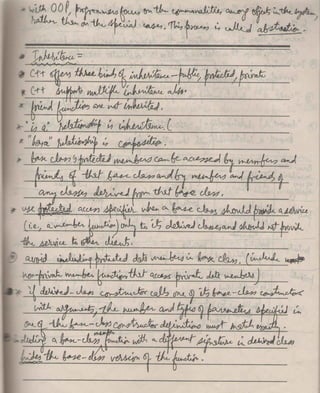 * with OOP, programmers focus on the commonalities among objects in the system,
rather than on the special cases. This process is called abstraction.
* Inheritance =
* C++ offers three kinds of inheritance - public, protected, private
* C++ supports multiple inheritance also.
* friend functions are not inherited.
* "is a" relationship is inheritance (
* "has a" relationship is composition.
* base class's protected members can be accessed by members and
friends of that base class and by members and friends of
any classes derived from that base class.
* use protected access specifier when a base class should provide a service
(i.e., a member function) only to its derived classes and should not provide
the service to other clients.
* avoid including protected data members in base class. (include
non-private member functions that access private data members)
* if derived-class constructor calls one of its base-class constructors
with arguments, the number and types of parameters specified in
one of the base-class constructor definitions must match exactly.
a base-class member function with a different signature in derived class
hides the base-class version of the function.